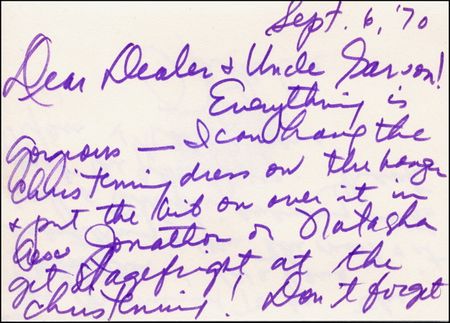 Sept. 6, '70
Dear Dealer & Uncle Garson!
Everything is
gorgeous — I can hang the
Christenning dress on the hanger
& put the bib on over it in
case Jonathon or Natasha
get stagefright at the
christenning! Don't forget